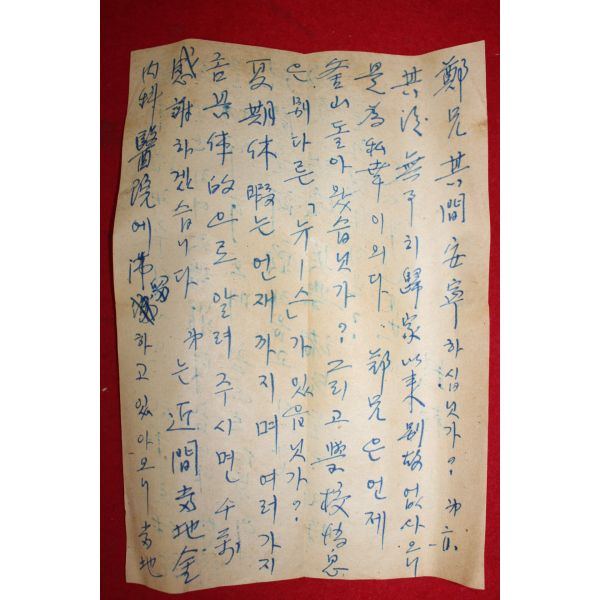 鄭兄 其間 安寧하십닛가? 弟言
其後 無事히 歸家以來 別故 없사오니
是為私幸이외다. 鄭兄은 언제
釜山 돌아왔습닛가? 그리고 學校消息
은 別다른「뉴ー스」가 있음닛가?
夏期休暇는 언재까지며 여러가지
좀 具体的으로 알려 주시면 千萬
感謝하겠습니다. 弟는 近間 當地 金
內科醫院에 滯留하고 있아오니 當地